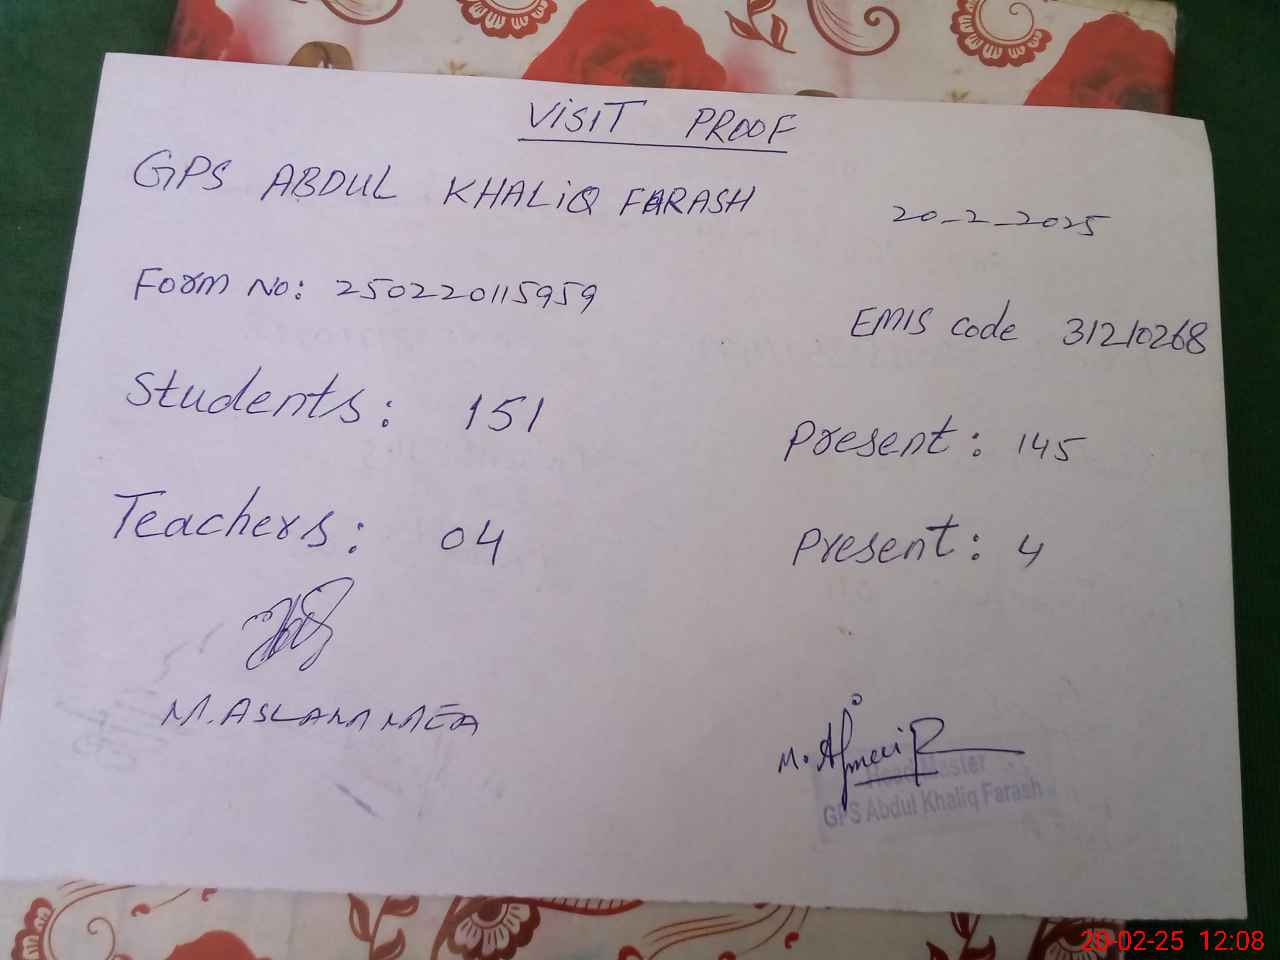 VISIT PROOF
GPS ABDUL KHALIQ FARASH
20-2-2025
Form No: 250220115959
EMIS code 31210268
Students: 151
Present: 145
Teachers: 04
Present: 4
M. ASLAM MEA
M.
Head Master
GPS Abdul Khaliq Farash
20-02-25 12:08